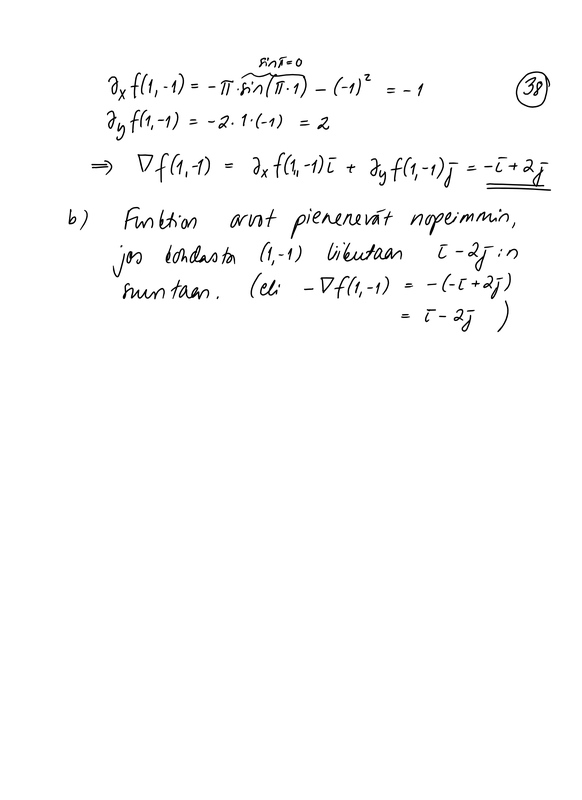 sin π = 0
∂ₓf(1,-1) = -π·sin(π·1) - (-1)² = -1
38
∂ᵧf(1,-1) = -2·1·(-1) = 2
⇒ ∇f(1,-1) = ∂ₓf(1,-1)i̅ + ∂ᵧf(1,-1)j̅ = -i̅+2j̅
b) Funktion arvot pienenevät nopeimmin,
jos kohdasta (1,-1) liikutaan i̅-2j̅:n
suuntaan. (eli -∇f(1,-1) = -(-i̅+2j̅)
= i̅-2j̅ )